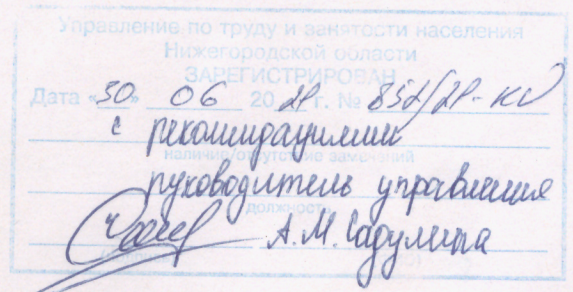 Управление по труду и занятости населения
Нижегородской области
ЗАРЕГИСТРИРОВАН
Дата «30» 06 2021 г. № 852/21-КД
с рекомендациями
наличие/отсутствие замечаний
руководитель управления
должность
А.М. Гадулина